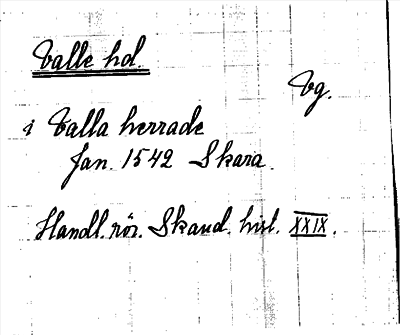 Valle hd.
Vg.
i Valla herrade
Jan. 1542 Skara.
Handl. rör. Skand. hist. XXIX.